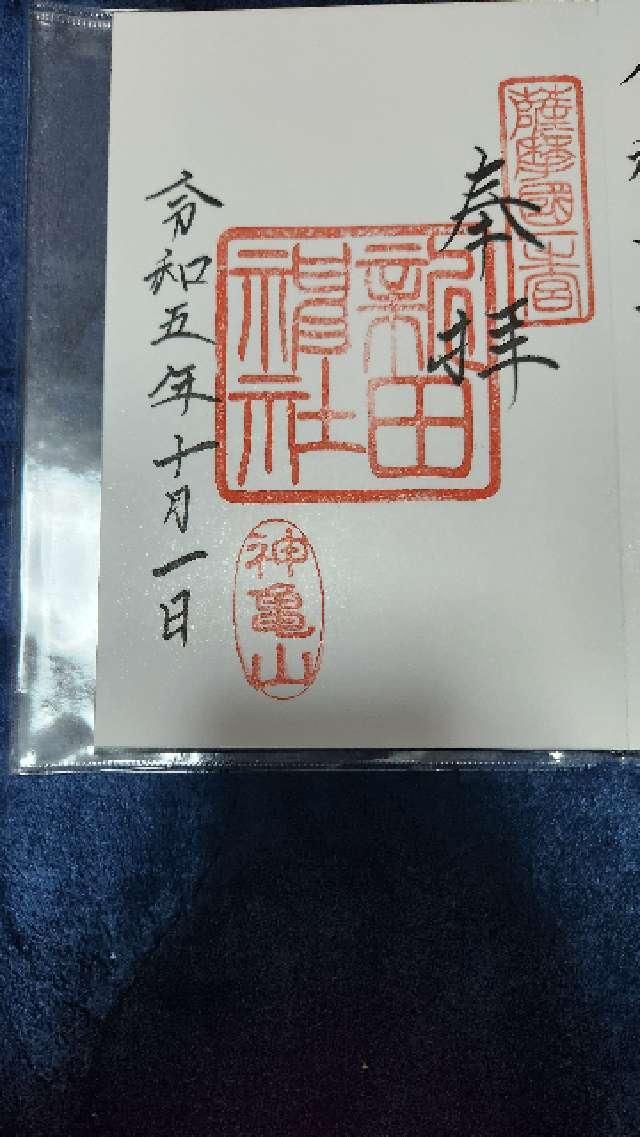 薩摩國一之宮
奉拝
新田
神社
神亀山
令和五年十月一日